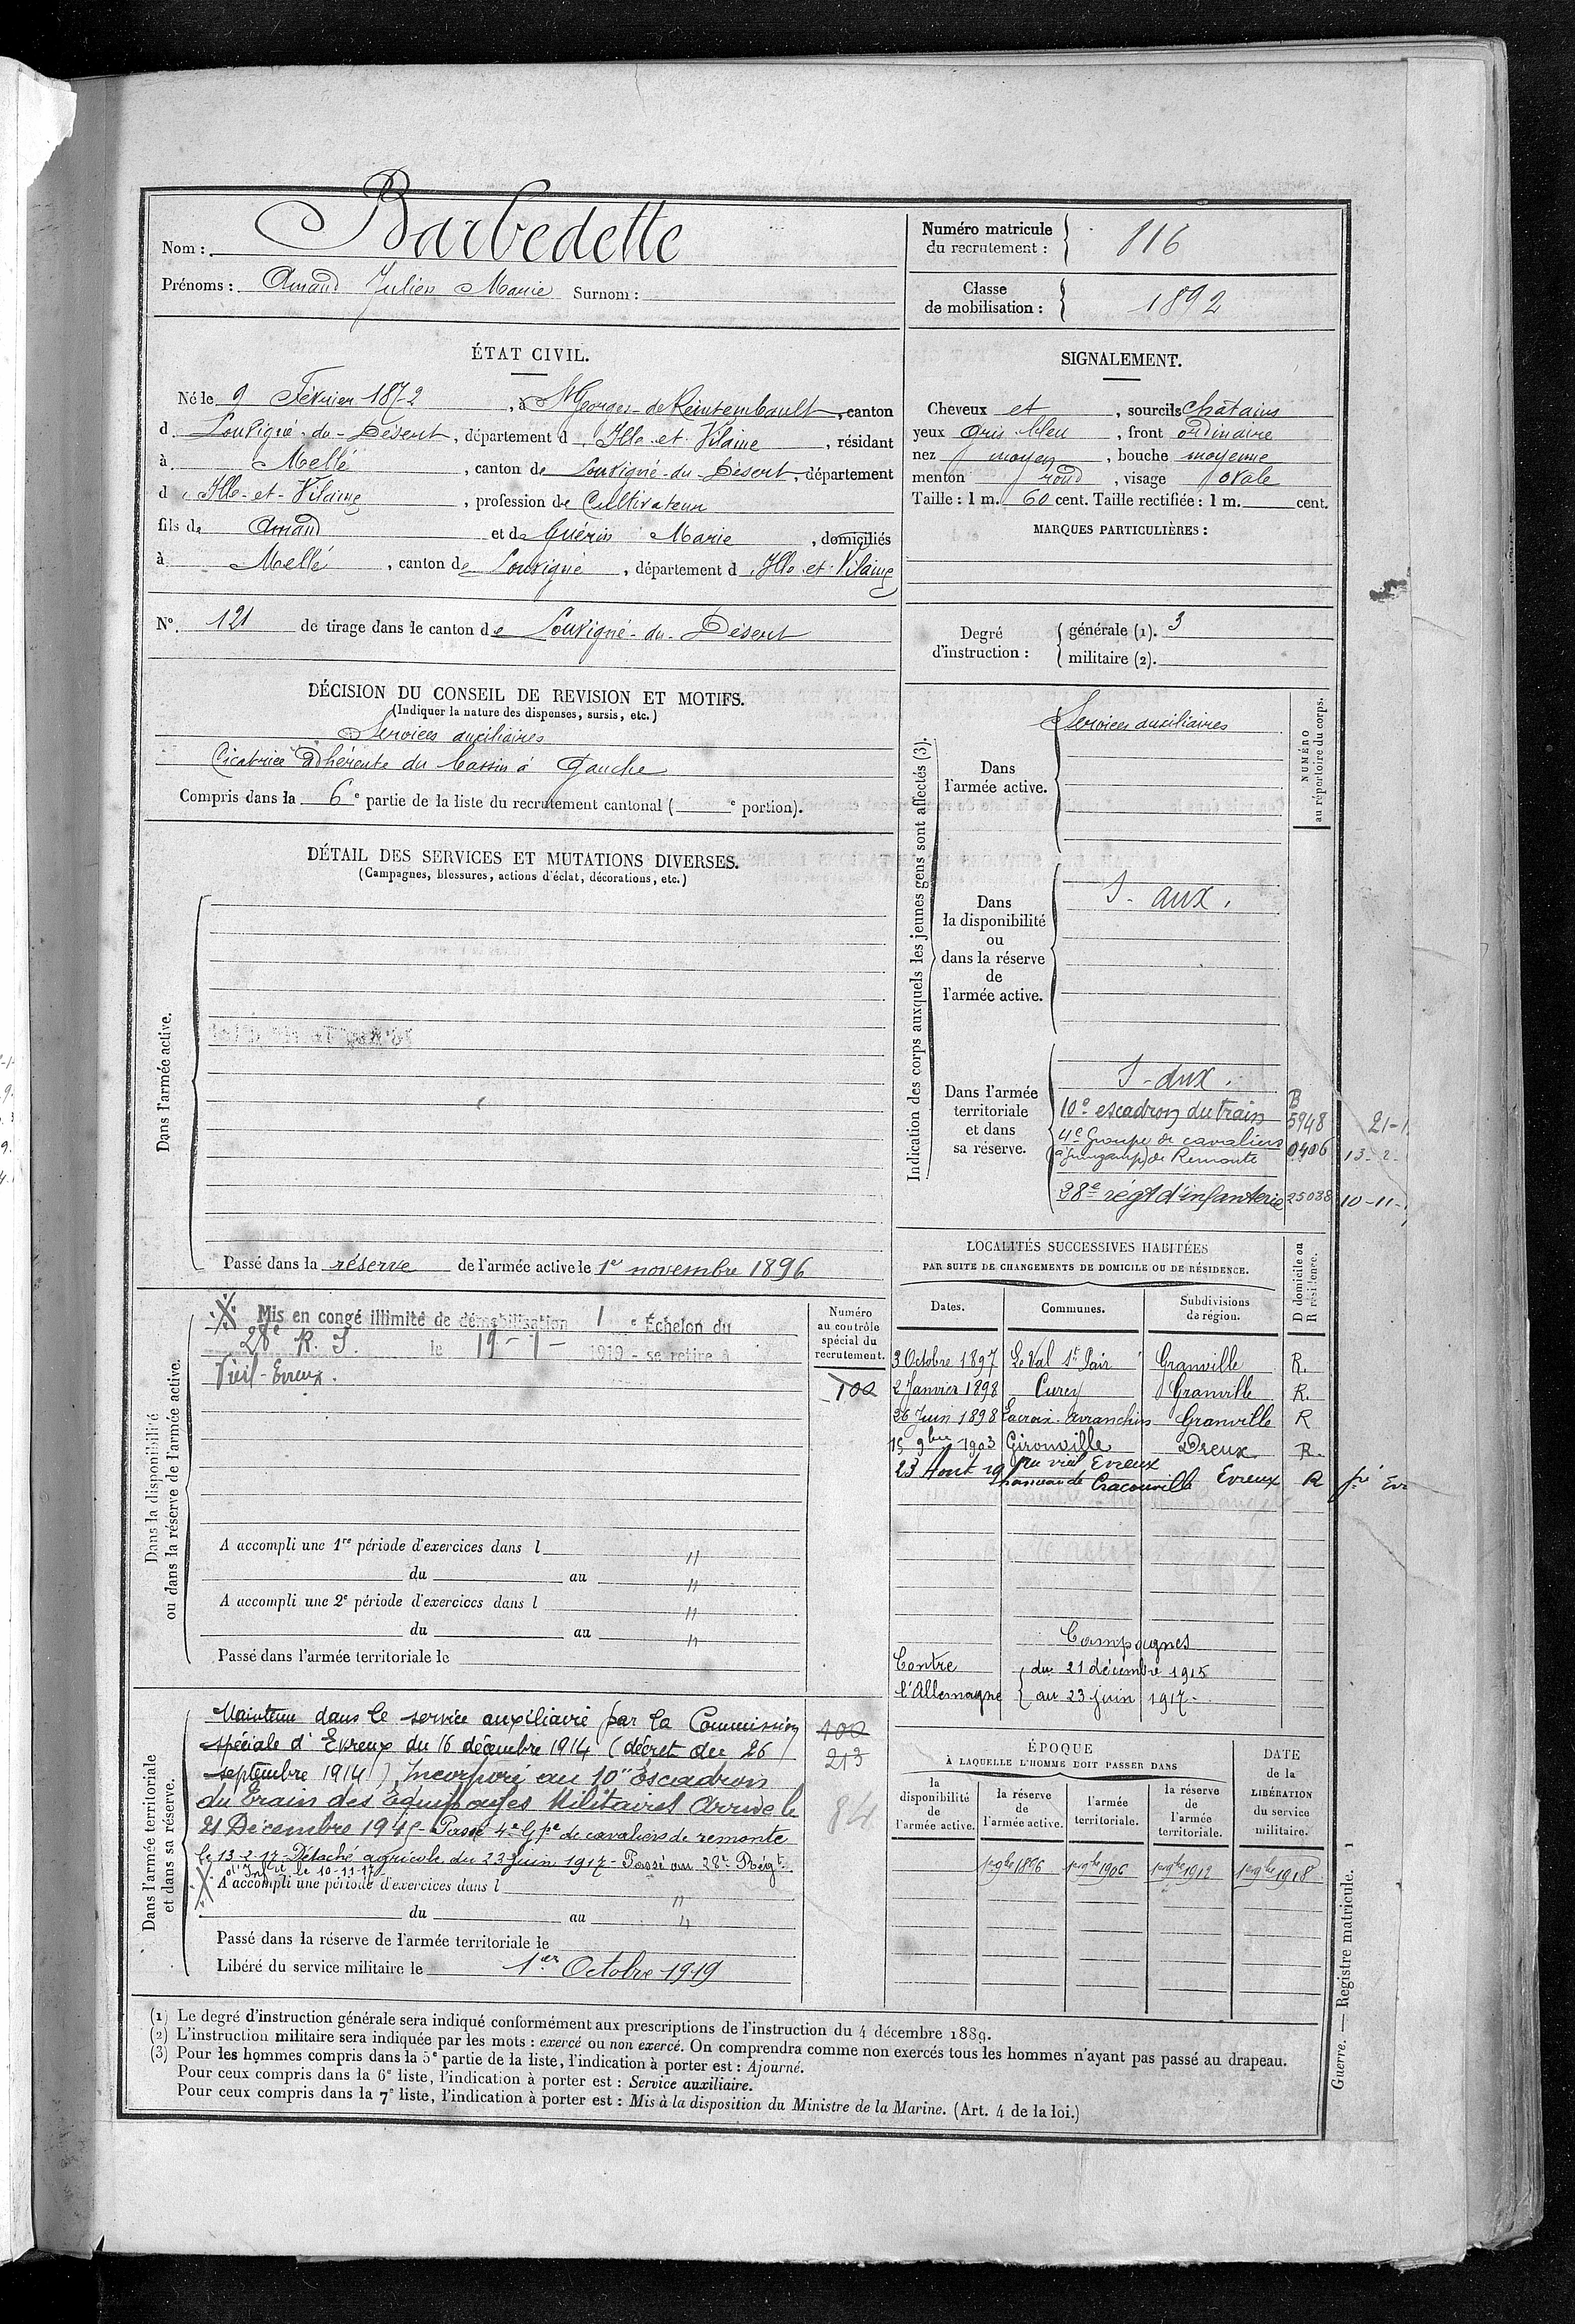 Nom : Barbedette
Prénoms : Amand Julien Marie Surnom :
Numéro matricule du recrutement : 816
Classe de mobilisation : 1892
ÉTAT CIVIL.
Né le 9 Février 1872, à St Georges-de-Reintembault, canton
d Louvigné-du-Désert, département d'Ille-et-Vilaine, résidant
à Mellé, canton de Louvigné-du-Désert, département
d'Ille-et-Vilaine, profession de Cultivateur
fils de Amand et de Guérin Marie, domiciliés
à Mellé, canton de Louvigné, département d'Ille-et-Vilaine
N° 121 de tirage dans le canton de Louvigné-du-Désert
SIGNALEMENT.
Cheveux et, sourcils châtains
yeux gris bleu, front ordinaire
nez moyen, bouche moyenne
menton rond, visage ovale
Taille : 1 m. 60 cent. Taille rectifiée : 1 m. cent.
MARQUES PARTICULIÈRES :
Degré d'instruction : générale (1). 3
militaire (2).
DÉCISION DU CONSEIL DE REVISION ET MOTIFS.
(Indiquer la nature des dispenses, sursis, etc.)
Services auxiliaires
Cicatrice adhérente du bassin à gauche
Compris dans la 6e partie de la liste du recrutement cantonal ( e portion).
DÉTAIL DES SERVICES ET MUTATIONS DIVERSES.
(Campagnes, blessures, actions d'éclat, décorations, etc.)
Dans l'armée active.
Passé dans la réserve de l'armée active le 1er novembre 1896
Indication des corps auxquels les jeunes gens sont affectés (3).
NUMÉRO au répertoire du corps.
Dans l'armée active.
Services auxiliaires
Dans la disponibilité ou dans la réserve de l'armée active.
S. aux.
Dans l'armée territoriale et dans sa réserve.
S. aux.
10e escadron du train B 5948 21-1
4e Groupe de cavaliers 0406 13-2-
(à Guingamp) de Remonte
28e régt d'infanterie 25038 10-11-
LOCALITÉS SUCCESSIVES HABITÉES
PAR SUITE DE CHANGEMENTS DE DOMICILE OU DE RÉSIDENCE.
D domicile ou R résidence.
Dates. Communes. Subdivisions de région.
3 Octobre 1897 Le Val St Pair Granville R.
2 Janvier 1898 Curey Granville R.
26 Juin 1898 Lacroix-Avranchin Granville R
15 9bre 1903 Gironville Dreux R.
23 Aout 19 au vieil Evreux
hameau de Cracouville Evreux R
Campagnes
Contre l'Allemagne { du 21 décembre 1915
au 23 juin 1917-
Dans la disponibilité ou dans la réserve de l'armée active.
Numéro au contrôle spécial du recrutement.
Mis en congé illimité de démobilisation 1 e Échelon du
28e R. I. le 19-1-1919 - se retire à
Vieil-Evreux.
100
A accompli une 1re période d'exercices dans l "
du au "
A accompli une 2e période d'exercices dans l "
du au "
Passé dans l'armée territoriale le
Dans l'armée territoriale et dans sa réserve.
Maintenu dans le service auxiliaire par la Commission
spéciale d'Evreux du 16 décembre 1914 (décret du 26
septembre 1914) Incorporé au 10e Escadron
du Train des Equipages Militaires Arrivé le
21 Décembre 1915- Passé 4e Gpe de cavaliers de remonte
le 13-2-17- Détaché agricole du 23 juin 1917- Passé au 28e Régt
d'Inftie le 10-11-17-
100
213
84
A accompli une période d'exercices dans l "
du au "
Passé dans la réserve de l'armée territoriale le
Libéré du service militaire le 1er Octobre 1919
ÉPOQUE
À LAQUELLE L'HOMME DOIT PASSER DANS
la disponibilité de l'armée active.
la réserve de l'armée active.
l'armée territoriale.
la réserve de l'armée territoriale.
DATE de la LIBÉRATION du service militaire.
1er 9bre 1896 1er 9bre 1906 1er 9bre 1912 1er 9bre 1918
(1) Le degré d'instruction générale sera indiqué conformément aux prescriptions de l'instruction du 4 décembre 1889.
(2) L'instruction militaire sera indiquée par les mots : exercé ou non exercé. On comprendra comme non exercés tous les hommes n'ayant pas passé au drapeau.
(3) Pour les hommes compris dans la 5e partie de la liste, l'indication à porter est : Ajourné.
Pour ceux compris dans la 6e liste, l'indication à porter est : Service auxiliaire.
Pour ceux compris dans la 7e liste, l'indication à porter est : Mis à la disposition du Ministre de la Marine. (Art. 4 de la loi.)
Guerre. — Registre matricule. 1